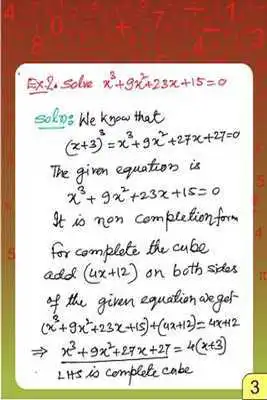 Ex.2. Solve x³+9x²+23x+15=0
Soln: We know that
(x+3)³=x³+9x²+27x+27=0
The given equation is
x³+9x²+23x+15=0
It is non completion form
for complete the cube
add (4x+12) on both sides
of the given equation we get
(x³+9x²+23x+15)+(4x+12)=4x+12
⇒ x³+9x²+27x+27=4(x+3)
LHS is complete cube
3